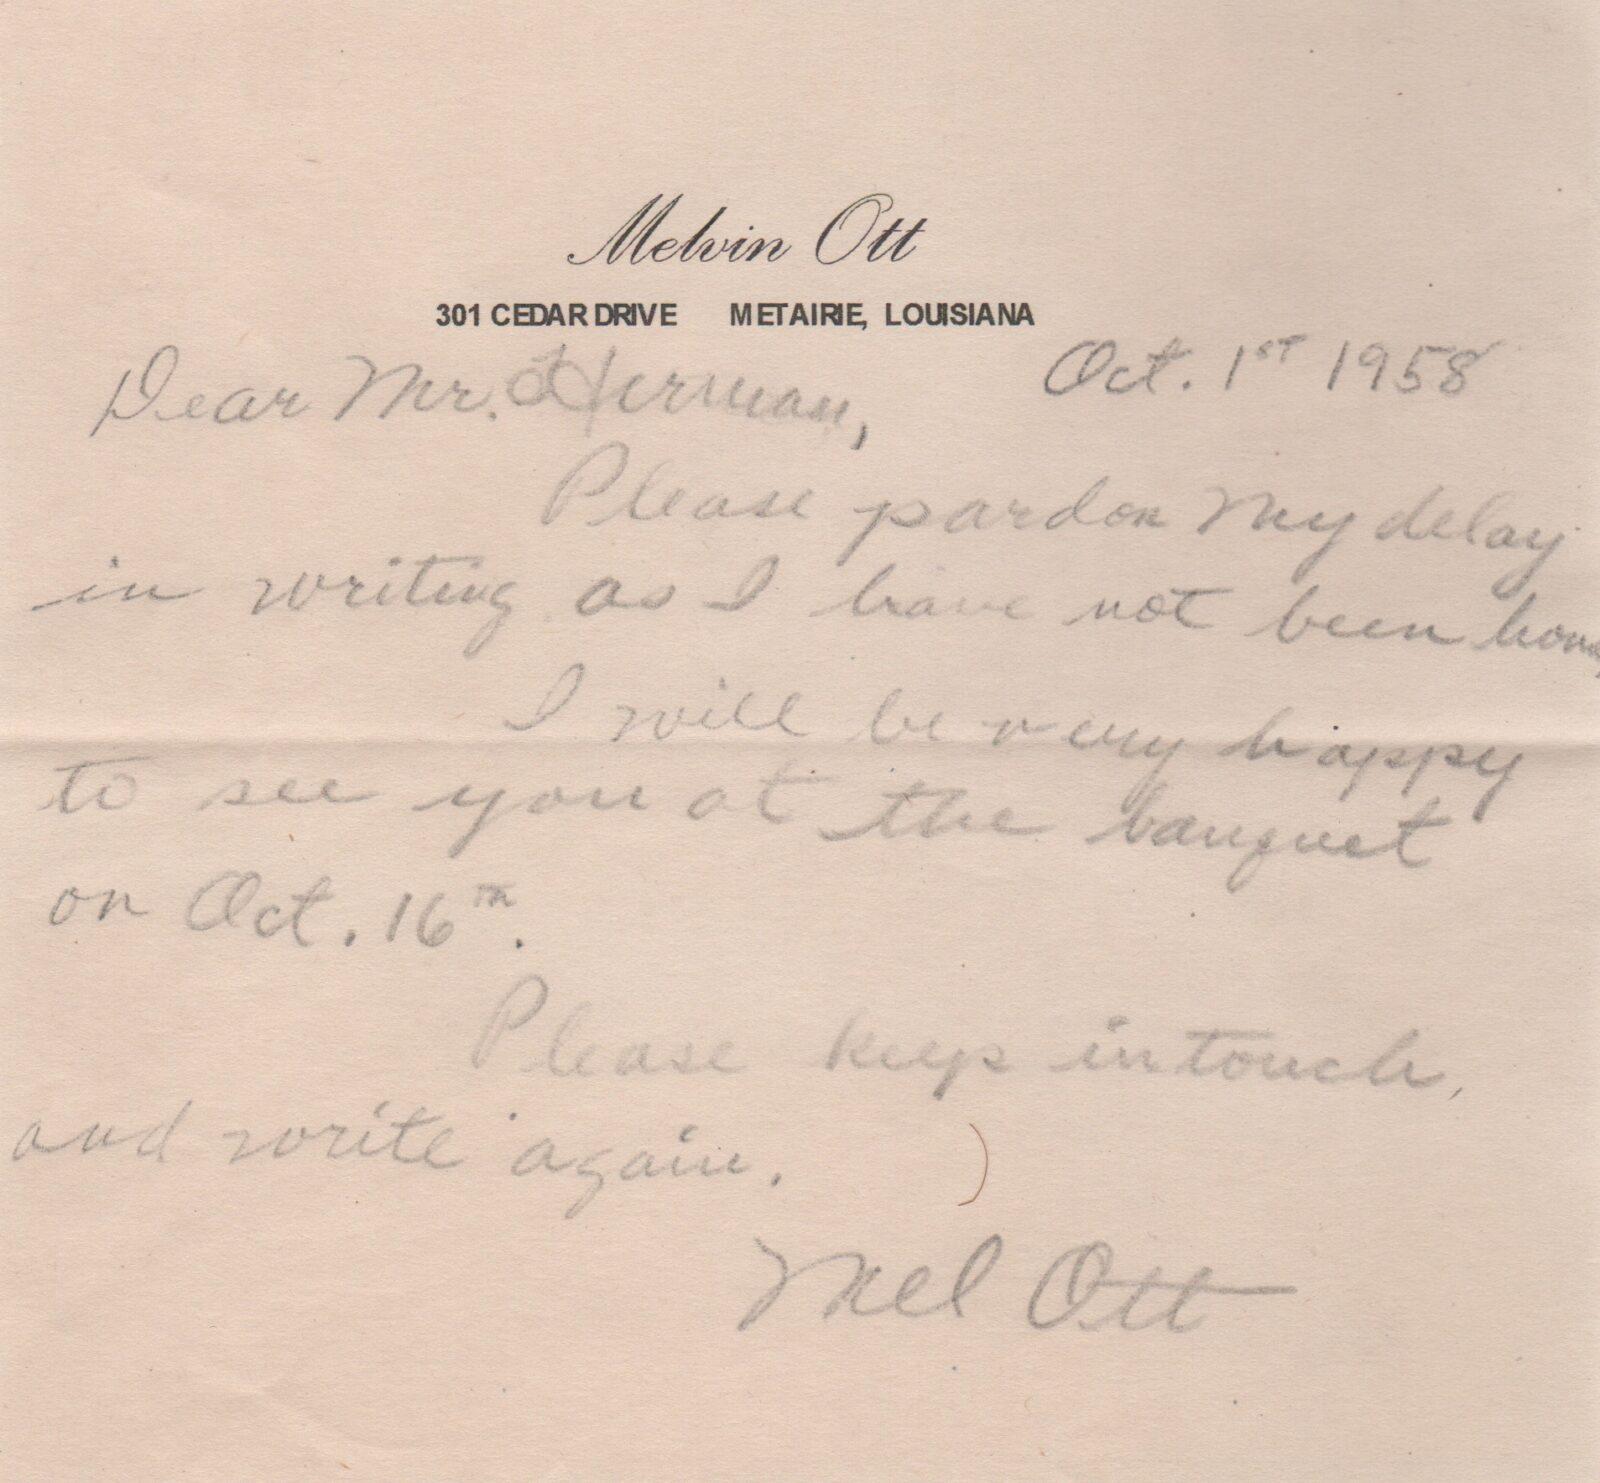 Melvin Ott
301 CEDAR DRIVE METAIRIE, LOUISIANA
Oct. 1ST 1958
Dear Mr. Herman,
Please pardon My delay
in writing as I have not been home,
I will be very happy
to see you at the banquet
on Oct. 16TH.
Please keep in touch,
and write again.
Mel Ott